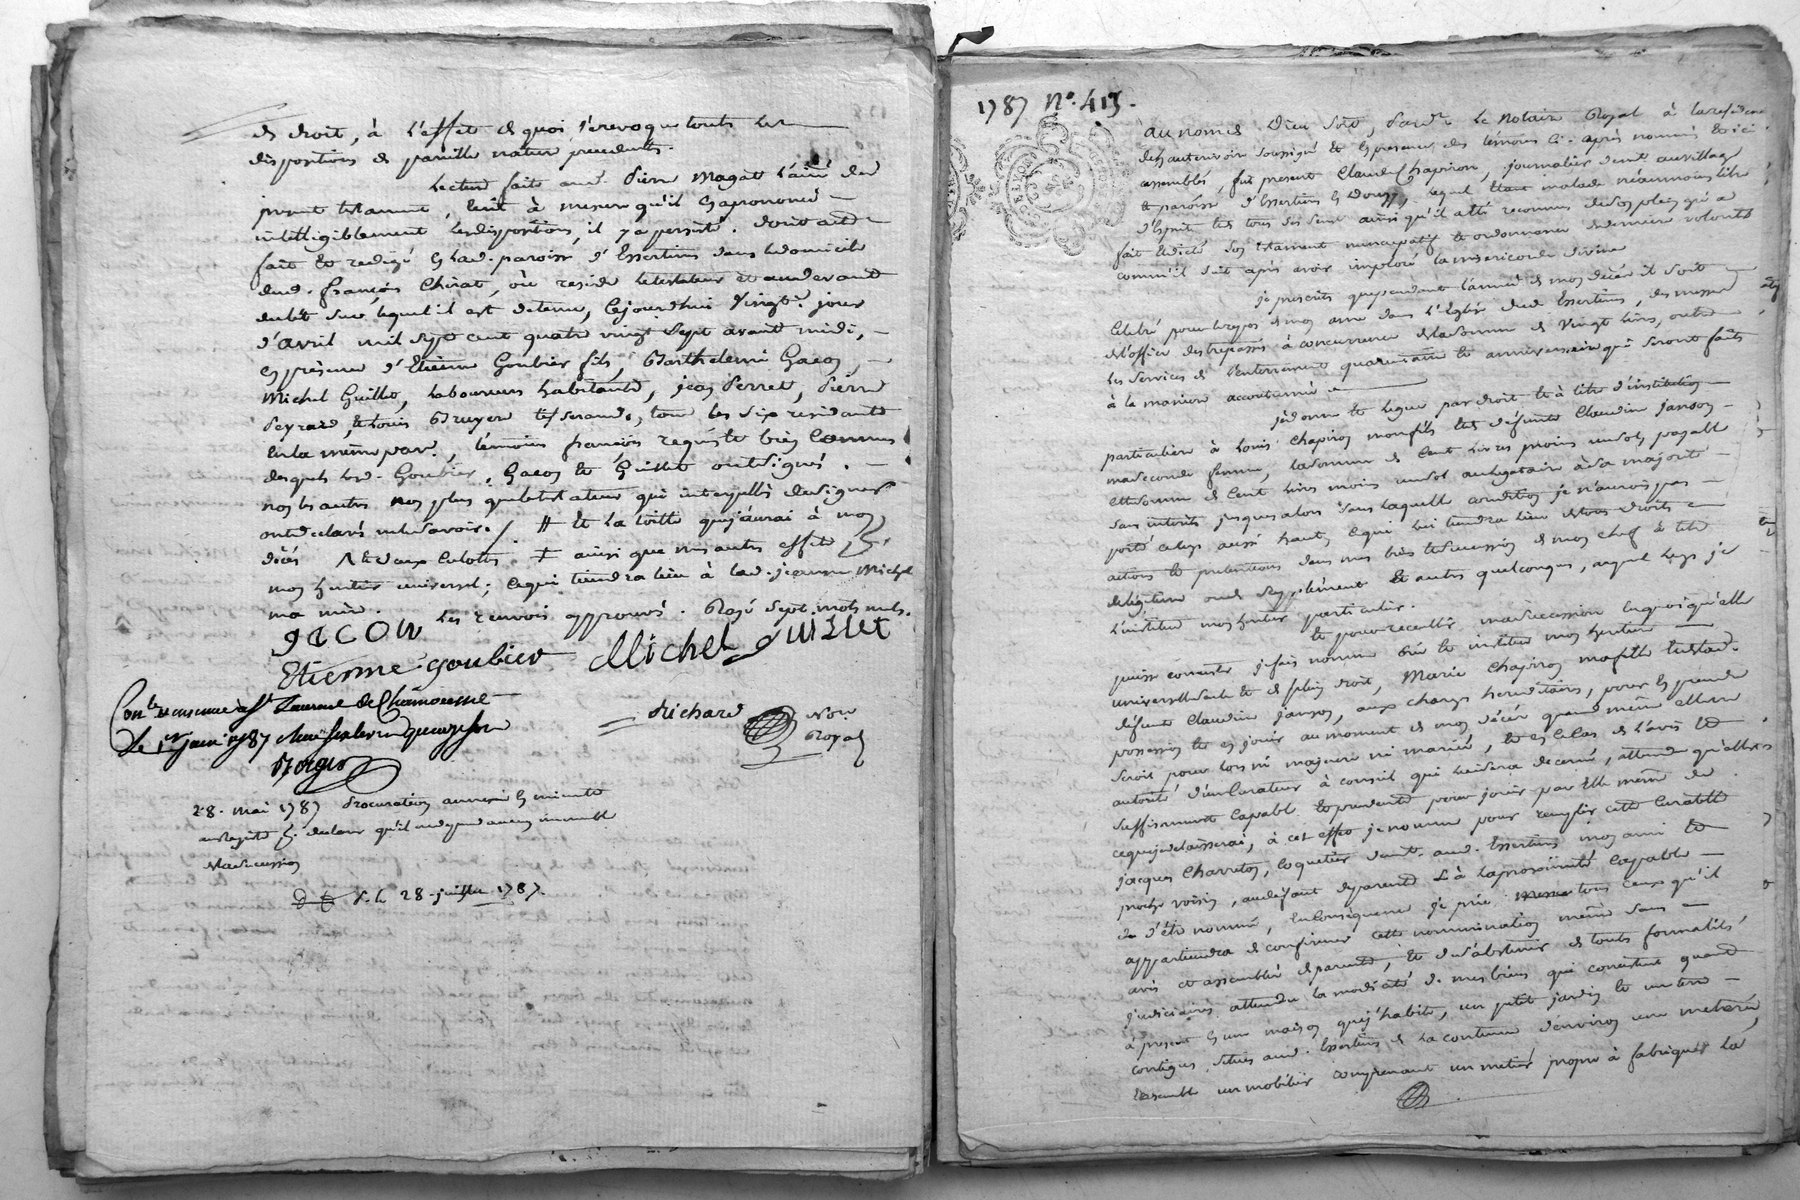 de droit, à l'effet de quoi je revoque toutes les
dispositions de pareille nature precedentes.
Lecture faite aud. Pierre Magat l'ainé du
present testament, écrit à mesure qu'il en a prononcé
intelligiblement les dispositions, il y a persisté. dont acte
fait et redigé en lad. paroisse d'Essertines dans le domicile
dud. françois Chirat, où reside le testateur et audevant
du lit sur lequel il est detenu, cejourdhui vingt. jour
d'avril mil sept cent quatre vingt sept avant midi,
en présence d'Etienne Goubier fils, Barthelemi Gacon
Michel Guillet, laboureurs habitants, jean Perret, Pierre
Peyrard, et Louis Bruyere tisserands, tous les six residants
en la même par., témoins françois requis et bien connus
desquels lesd. Goubier, Gacon et Guillet ont signés.
non les autres non plus que le testateur qui interpellés de signer
ont declarés ne le savoir. / # et la toille que j'aurai à mon
décés & deux culottes + ainsi que mes autres effets
mon heritier universel; ce qui tiendra lieu à lad. jeanne Michel
ma mère. Les renvois approuvés. Rayé sept mots nuls.
gACOn
Etienne goubier Michel guillet
Richard Nore
Royal
Le 1er 1787
28. mai 1787 Procuration annexée à minute
declare qu'il ne depend aucun immeuble
de la succession
28. juillet 1787.
1787 N°. 413.
Au nom de Dieu soit, Pardt. le Notaire Royal à la residence
de soussigné et en presence des témoins ci-après nommés et ici
assemblés, fut present Claude Chapiron, journalier demt. au village
et paroisse d'Essertines en Donzy, lequel étant malade néanmoins libre
d'esprit et de tous ses sens ainsi qu'il a été reconnu
fait et dicté son testament nuncupatif et ordonnance de derniere volonté
comme il suit après avoir imploré la misericorde divine
je prescrits que pendant l'année de mon décés il soit
célébré pour le repos de mon ame dans l'Eglise dud. Essertines, des messes
et l'office des trepassés à concurrence de la somme de vingt livres, outre
les services de l'enterrement quarantaine et anniversaire qui seront faits
à la maniere accoutumée
je donne et legue par droit et à titre d'institution
particuliere à Louis Chapiron mon fils et de défunte Claudine janson
ma seconde femme, la somme de cent livres moins un sol payable
et la somme de cent livres moins un sol au legataire à sa majorité
sans interets jusques alors sans laquelle condition je n'aurois pas
porté ce legs aussi haut, ce qui lui tiendra lieu de tous droits
actions et pretentions dans mes biens et succession de mon chef à titre
de legitime ou de supplément et autres quelconques, auquel legs je
l'institue mon heritier particulier.
et pour recueillir ma succession en quoi qu'elle
puisse consister je fais nomme crée et institue mon heritiere
universelle seule et de plein droit, Marie Chapiron ma fille et de lad.
défunte Claudine janson, aux charges hereditaires, pour en prendre
possession et en jouir au moment de mon décés quand même elle ne
seroit pour lors ni majeure ni mariée, et en ce cas de l'avis et
autorité d'un curateur à conseil qui lui sera decerné, attendu qu'elle est
suffisamment capable et prudente pour jouir par elle même de
ce que je delaisserai, à cet effet je nomme pour remplir cette curatelle
jacques Charreton, coquetier demt. aud. Essertines mon ami et
proche voisin, au défaut de parents là à la proximité capable
de d'être nommé, En consequence je prie tous ceux qu'il
appartiendra de confirmer cette nommination même sans
avis et assemblée de parents, et de s'abstenir de toutes formalités
judiciaires attendu la modicité de mes biens qui consistent quand
à present en une maison que j'habite, un petit jardin et un terre
contigus, situés aud. Essertines de la contenue d'environ une meterée,
ensemble un mobilier comprenant un metier propre à fabriquer la